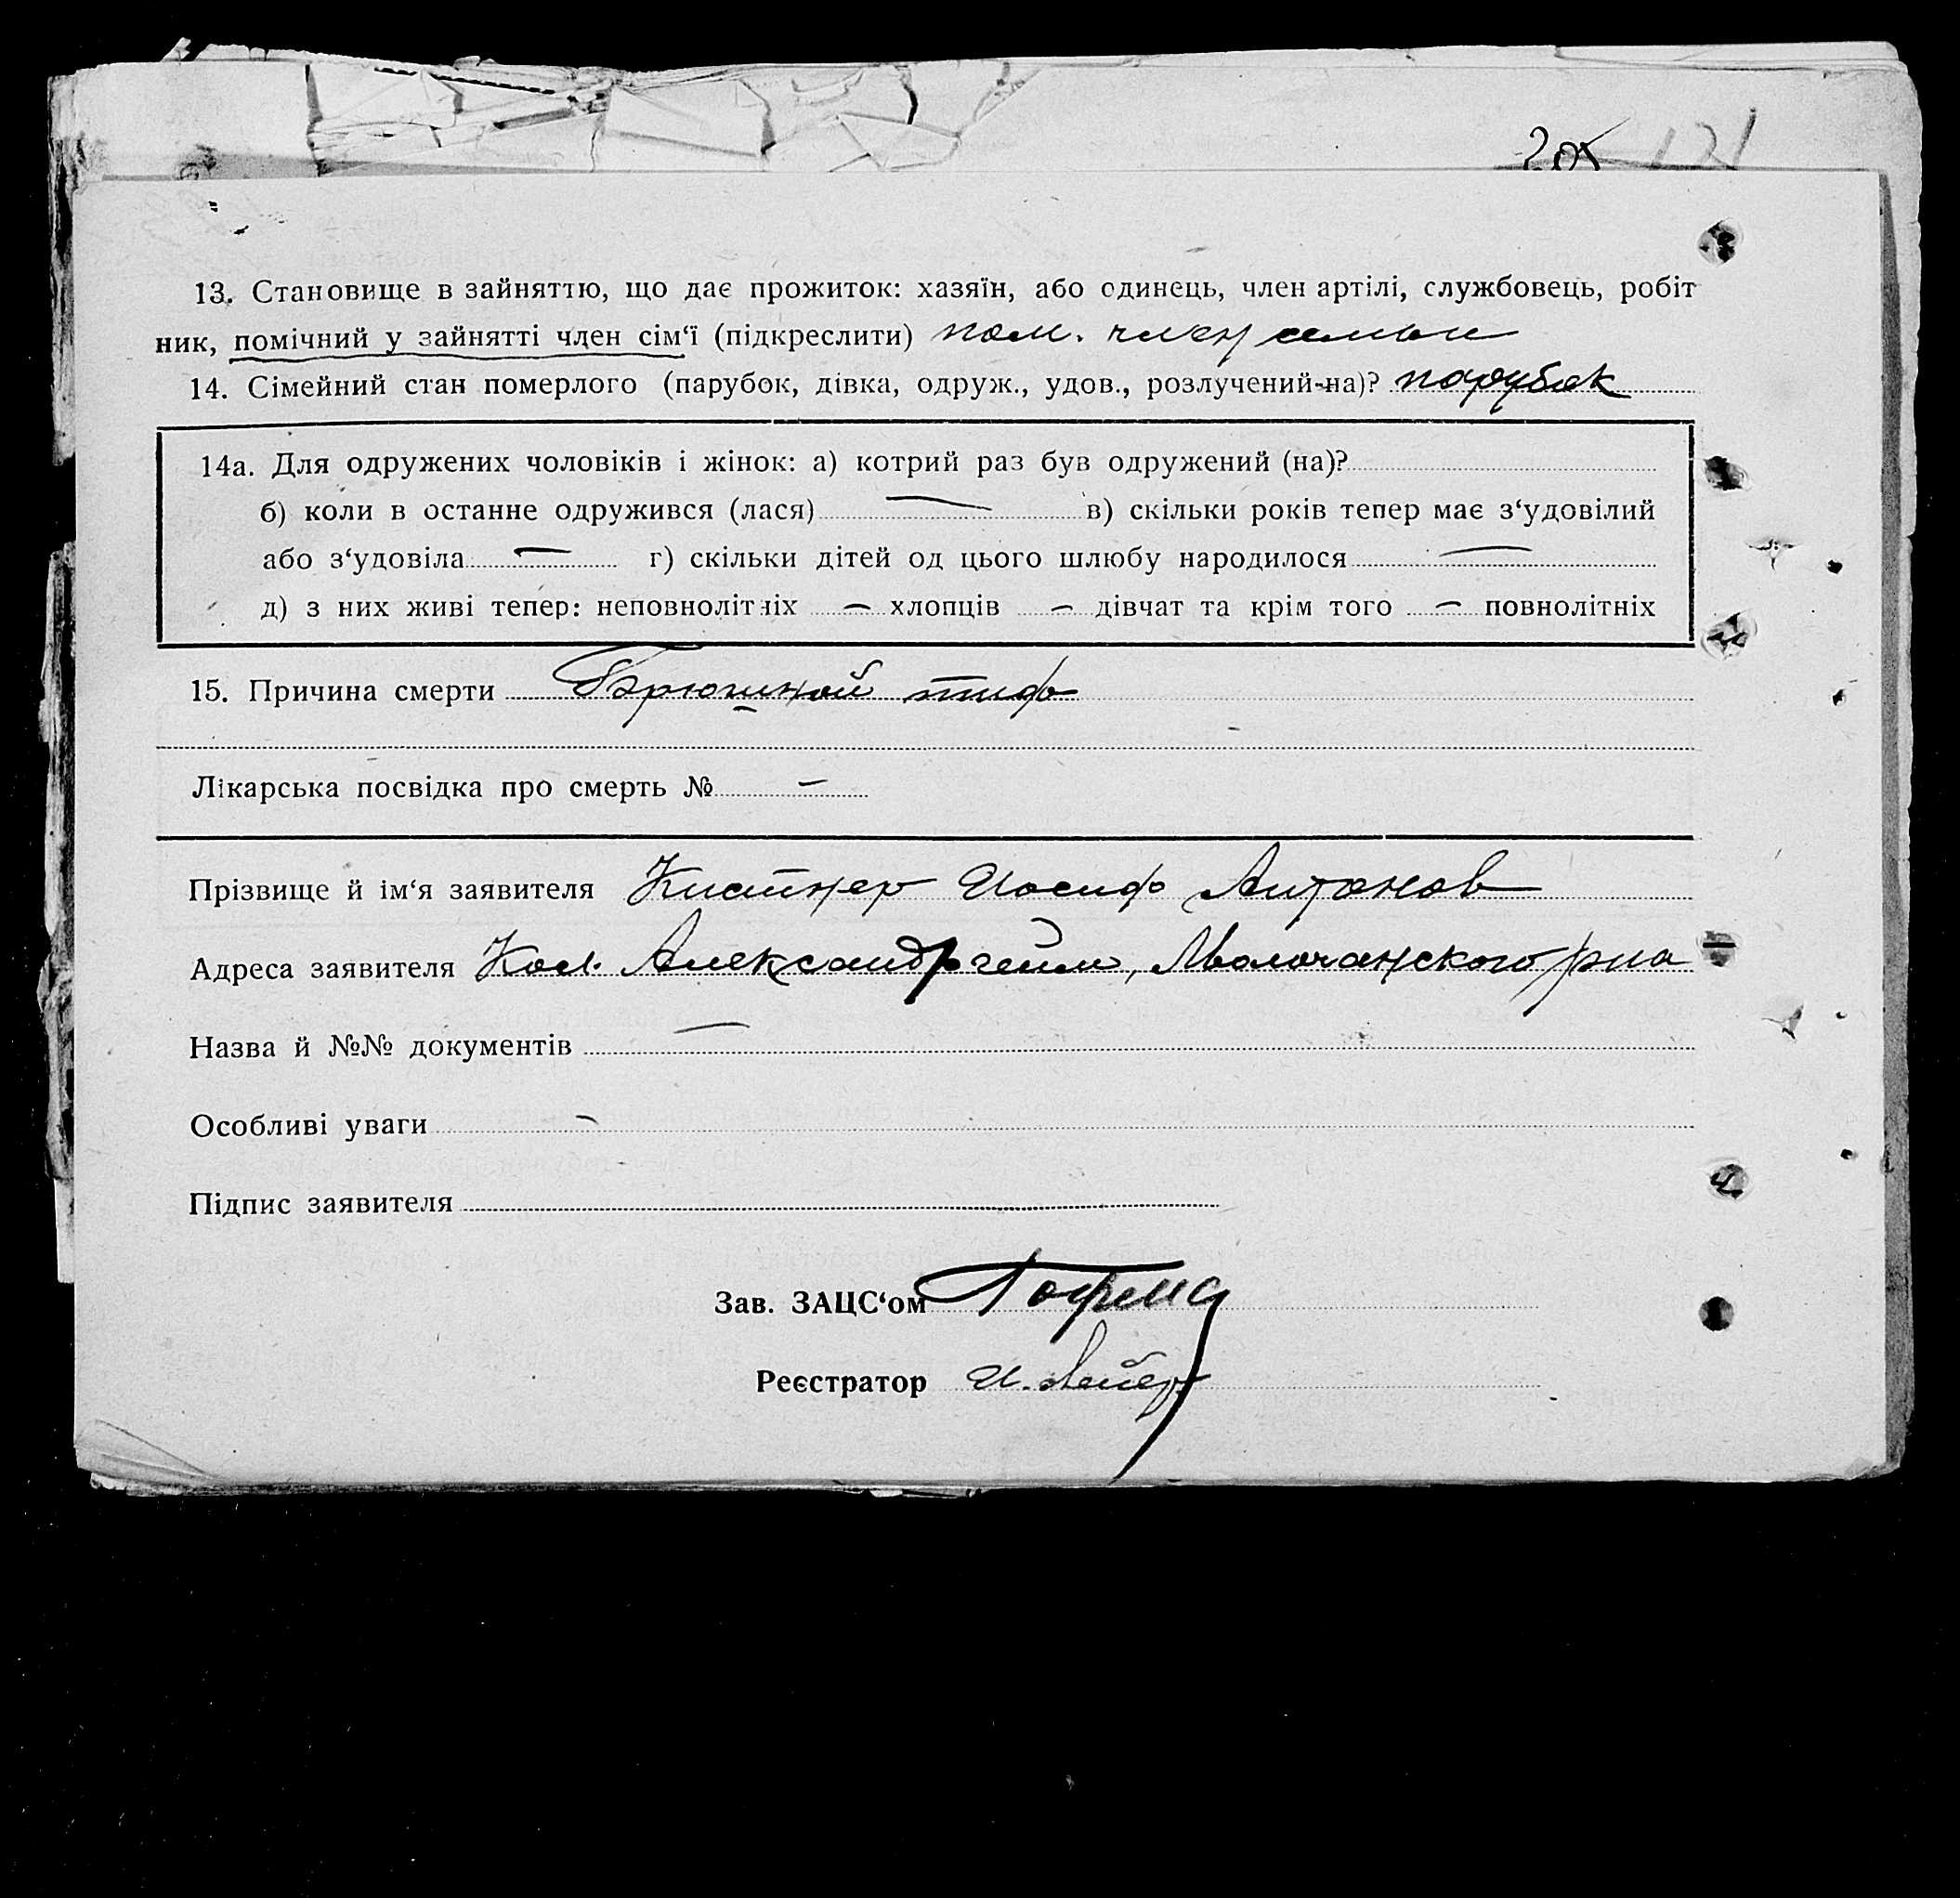 205 121
13. Становище в зайняттю, що дає прожиток: хазяїн, або одинець, член артілі, службовець, робіт
ник, помічний у зайнятті член сім‘ї (підкреслити) пом. член семьи
14. Сімейний стан померлого (парубок, дівка, одруж., удов., розлучений-на)? парубок
14а. Для одружених чоловіків і жінок: а) котрий раз був одружений (на)?
б) коли в останне одружився (лася) — в) скільки років тепер має з‘удовілий
або з‘удовіла — г) скільки дітей од цього шлюбу народилося —
д) з них живі тепер: неповнолітніх — хлопців — дівчат та крім того — повнолітніх
15. Причина смерти Брюшной тиф
Лікарська посвідка про смерть № —
Прізвище й ім‘я заявителя Кистнер Иосиф Антонов
Адреса заявителя Кол. Александргейм, Молочанского р-на
Назва й №№ документів —
Особливі уваги —
Підпис заявителя
Зав. ЗАЦС‘ом
Реєстратор И.